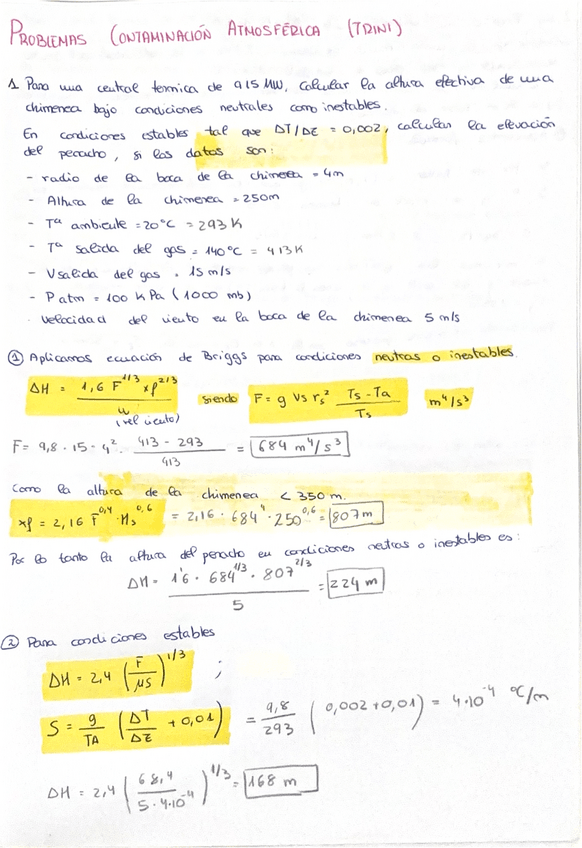 PROBLEMAS CONTAMINACIÓN ATMOSFÉRICA (TRINI)
1 Para una central termica de 915 MW, calcular la altura efectiva de una
chimenea bajo condiciones neutrales como inestables.
En condiciones estables tal que ΔT/ΔZ = 0,002, calcular la elevación
del penacho, si los datos son:
- radio de la boca de la chimenea = 4m
- Altura de la chimenea = 250m
- Tª ambiente = 20ºC = 293 K
- Tª salida del gas = 140ºC = 413K
- Vsalida del gas = 15 m/s
- P atm = 100 KPa (1000 mb)
- Velocidad del viento en la boca de la chimenea 5 m/s
① Aplicamos ecuación de Briggs para condiciones neutras o inestables.
ΔH = 1,6 F^1/3 xf^2/3 / u siendo F = g Vs rs² (Ts - Ta) / Ts m⁴/s³
(vel viento)
F = 9,8 · 15 · 4² · (413 - 293) / 413 = 684 m⁴/s³
Como la altura de la chimenea < 350 m.
xf = 2,16 F^0,4 · Hs^0,6 = 2,16 · 684^4 · 250^0,6 = 807m
Por lo tanto la altura del penacho en condiciones neutras o inestables es:
ΔH = 1'6 · 684^1/3 · 807^2/3 / 5 = 224 m
② Para condiciones estables
ΔH = 2,4 (F / μS)^1/3 ;
S = g / TA (ΔT / ΔZ + 0,01) = 9,8 / 293 (0,002 + 0,01) = 4·10^-4 ºC/m
ΔH = 2,4 (68,4 / 5 · 4·10^-4)^1/3 = 168 m